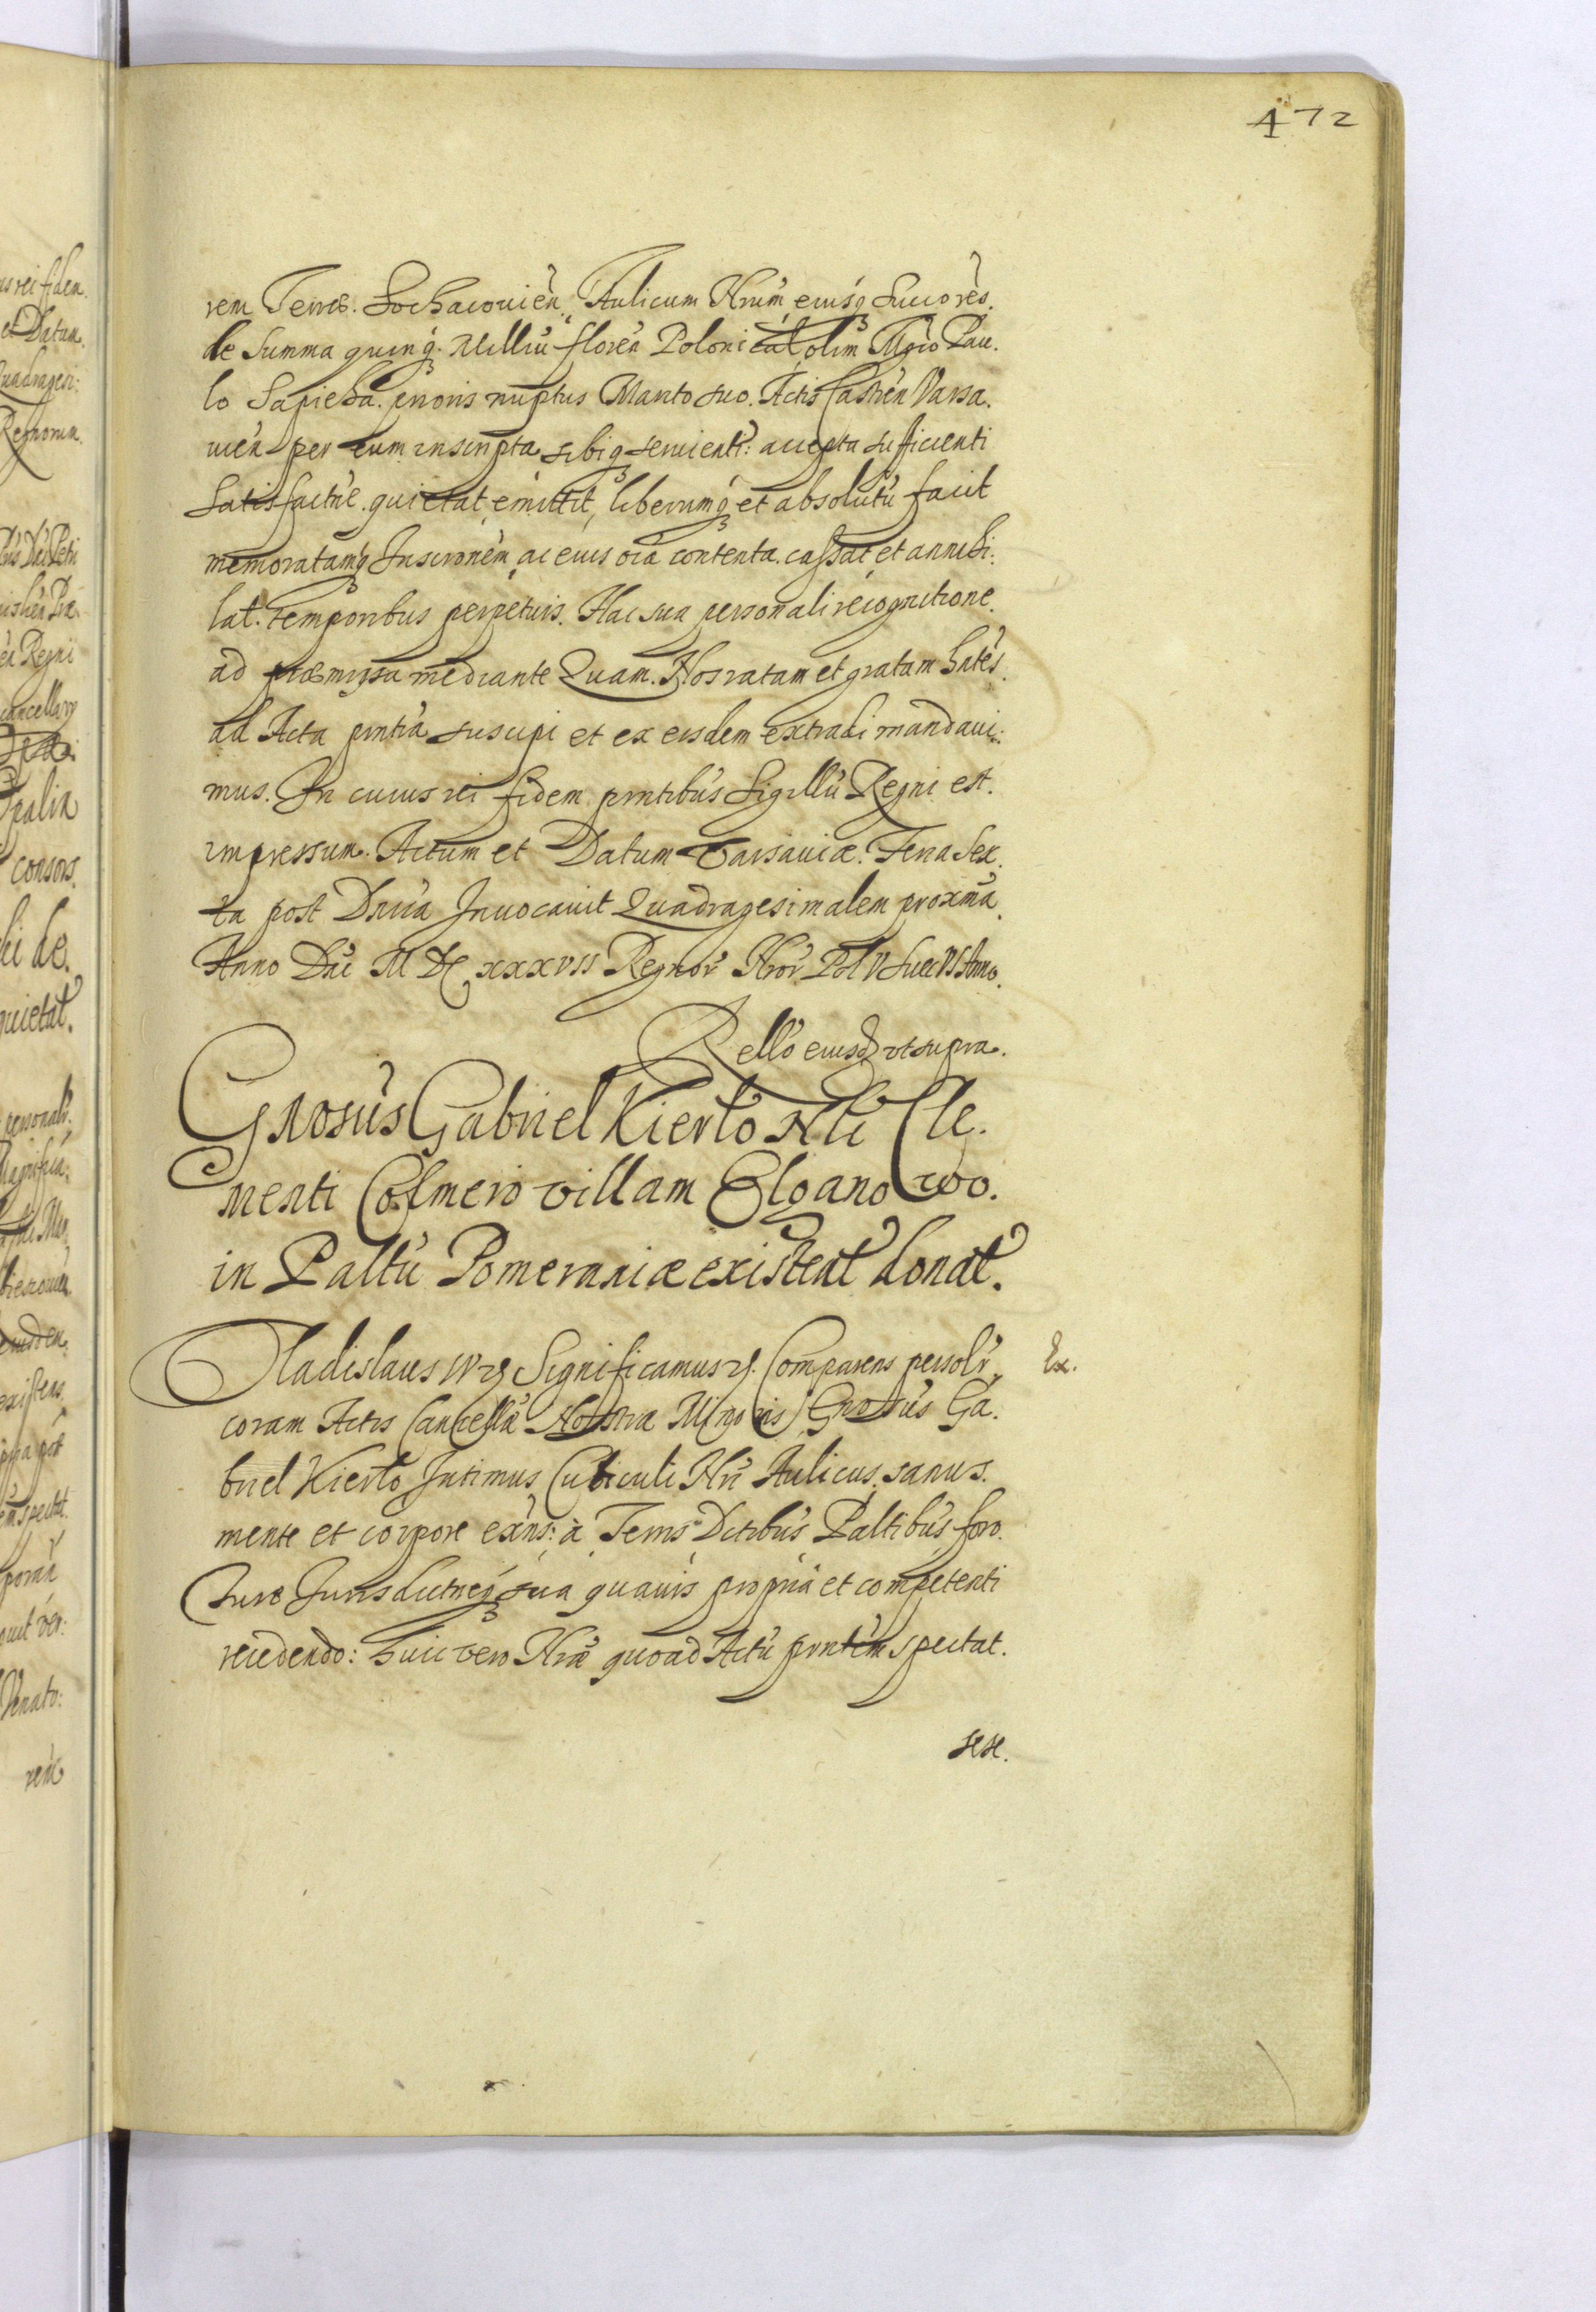 472
rem Terrae. Sochacouień, Aulicum Nrum eiusq; Succores.
de Summa quinq; Milliũ floreñ Polonicat, olim Mgco Pau.
lo Sapieha. prioris nuptus Marito suo. Actis Castreñ Varsa.
uień per eum inscripta, sibiq; seruienti: accepta sufficienti
satisfactne. quietat, emittit, liberumq; et absolutũ facit
memoratamq; Inscronem, ac eius oia contenta. cassat, et annihi:
lat. temporibus perpetuis. Hac sua personali recognitione.
ad praemissa mediante Quam. Nos ratam et gratam hates.
ad Acta pntia suscipi et ex eisdem extradi mandaui:
mus. In cuius rei fidem pntibus Sigillũ Regni est.
impressum. Actum et Datum Varsauiæ. Feria Sex.
ta post Dnica Inuocauit Quadragesimalem proxima,
Anno Dni M DC xxxvII Regnor Nror Pol V Suec VI Anno.
Rello eiusd vt supra.
Gnosus Gabriel Kierło Nli Cle.
menti Cosmero villam Elganowo.
in Paltũ Pomeraniæ existeat donat.
Vladislaus IV rz Significamus rz. Comparens persolr, Ex.
coram Actis Cancellã Nostræ Minoris, Gnosus Ga.
briel Kierło Intimus Cubiculi Nri Aulicus, sanus.
mente et corpore exñs: à Terris Ditibus Paltibus, foro.
Iure Iurisdictneq; sua quauis propria et competenti
recedendo: huic vero Nræ quoad Actũ pntem spectat.
sese.